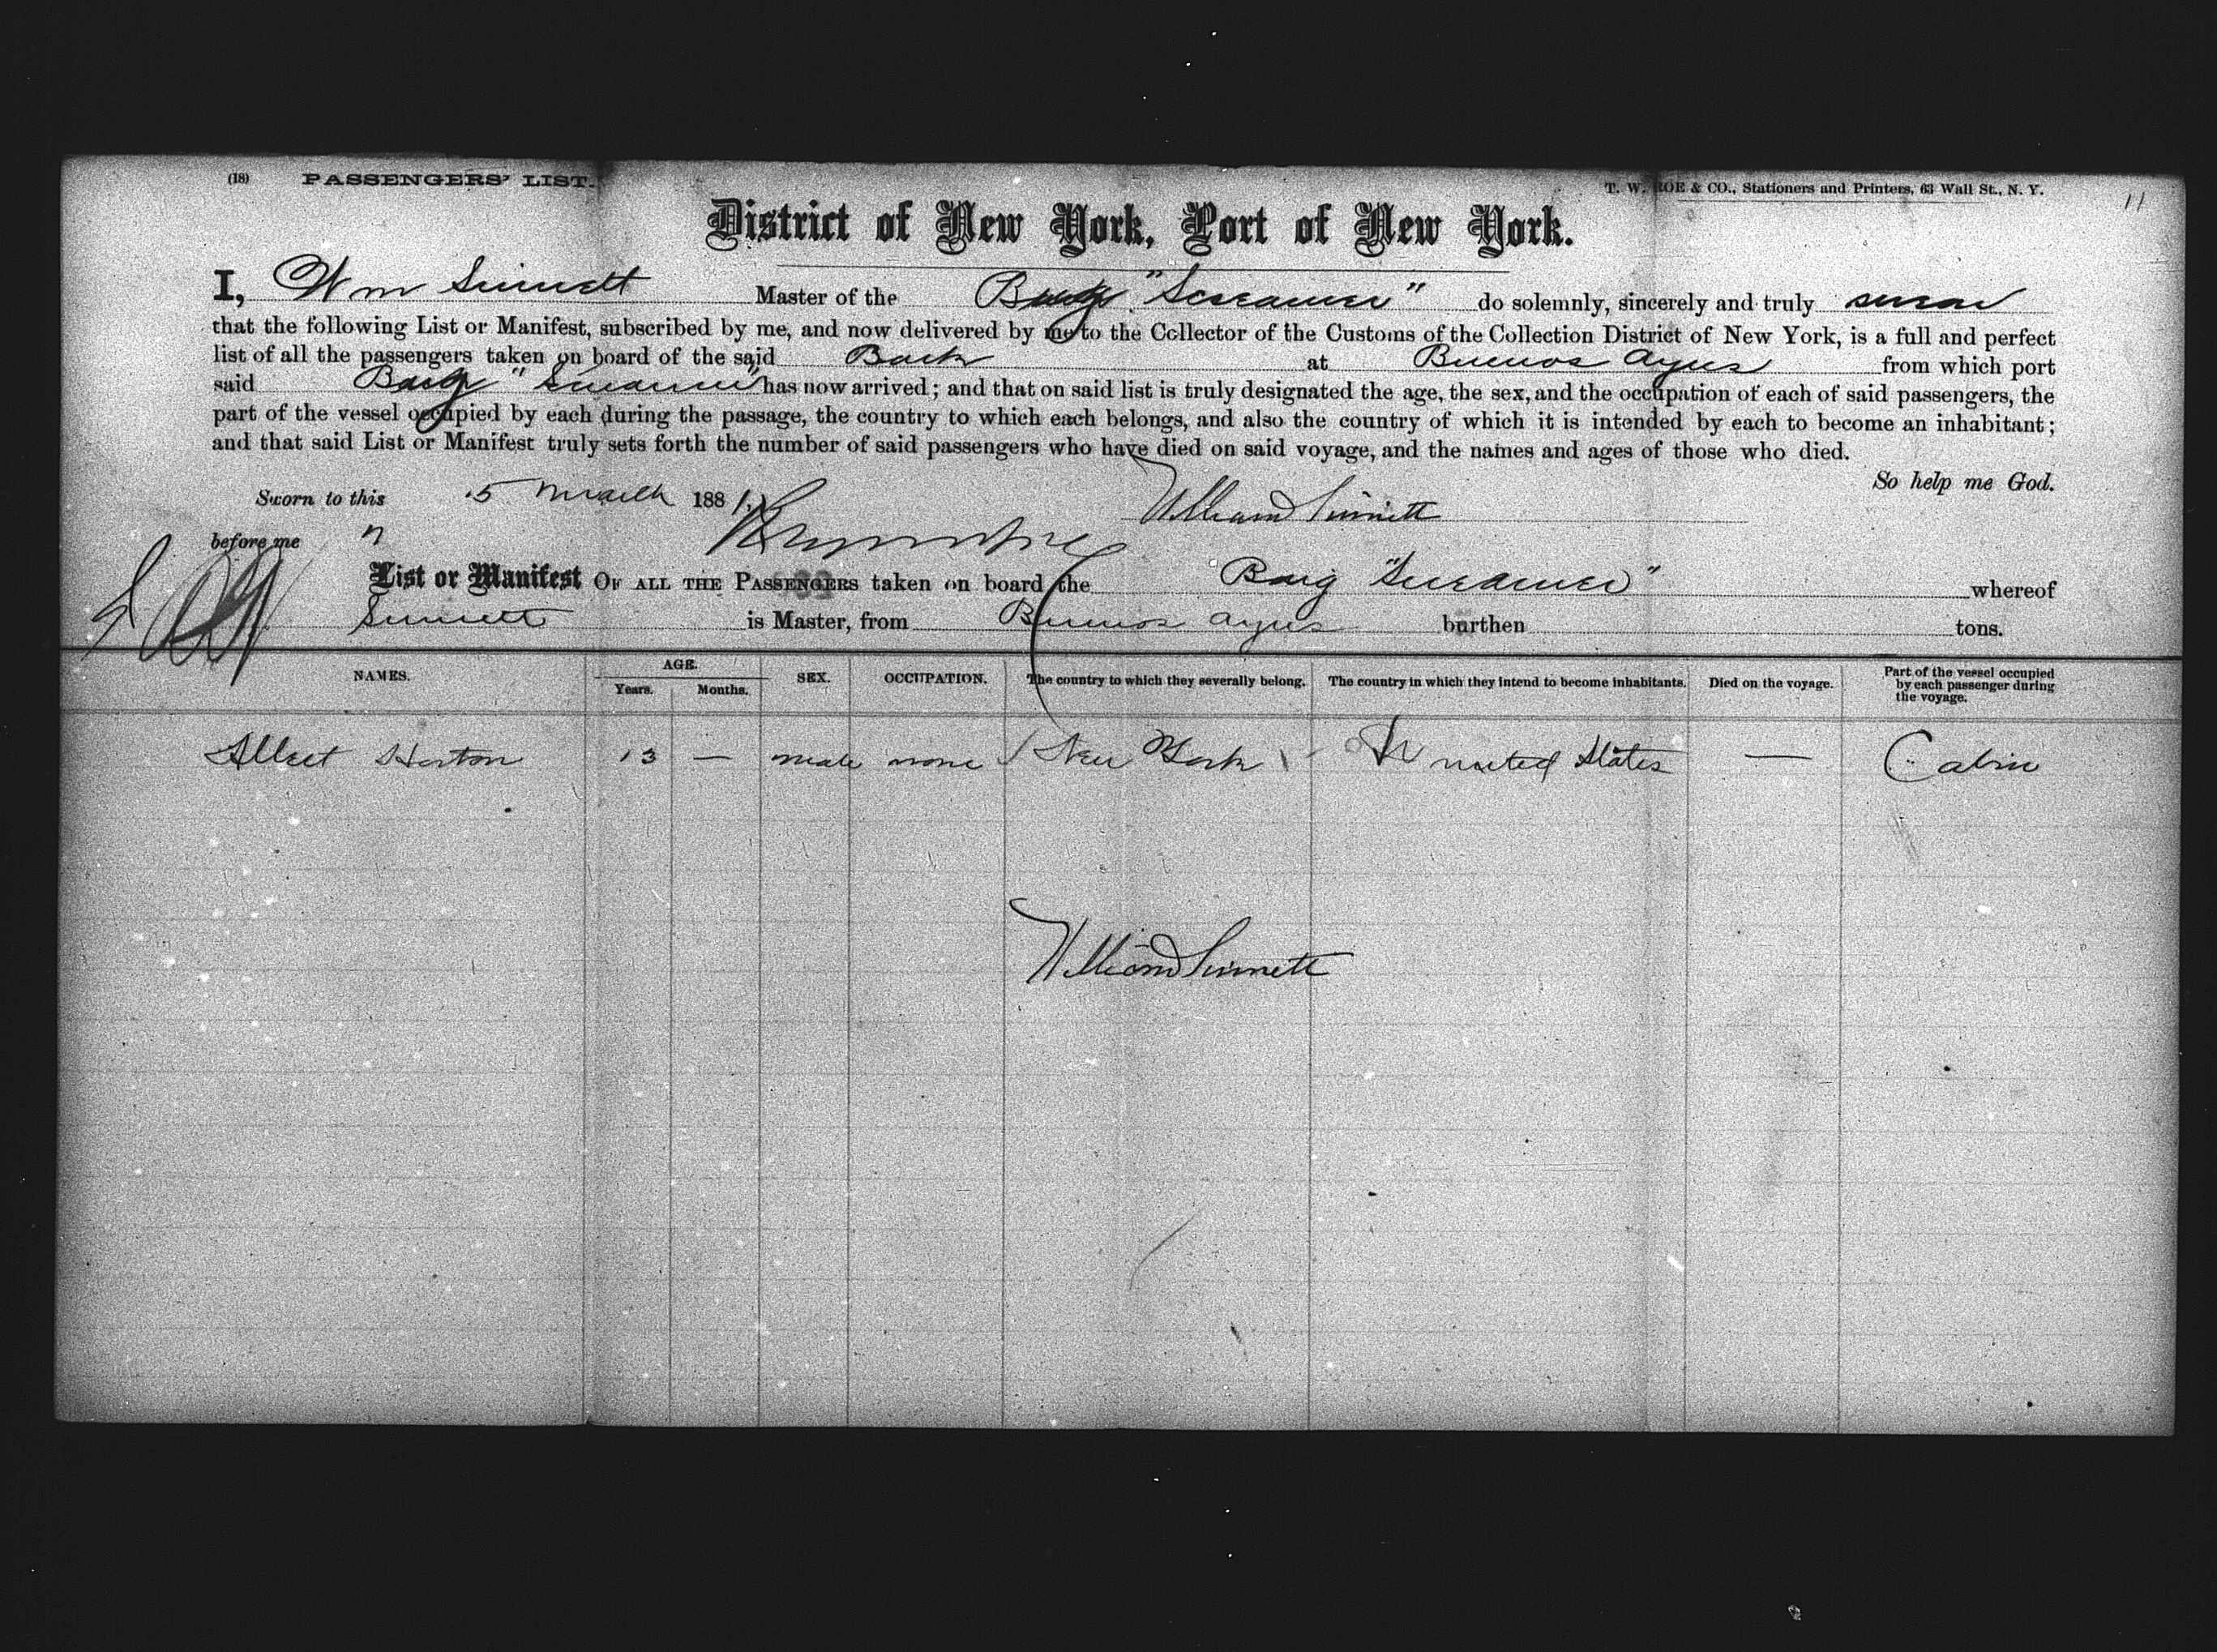 (18) PASSENGERS' LIST. T. W. ROE & CO., Stationers and Printers, 63 Wall St., N. Y. 11
District of New York, Port of New York.
I, Wm Sinnett Master of the "Screamer" do solemnly, sincerely and truly swear
that the following List or Manifest, subscribed by me, and now delivered by me to the Collector of the Customs of the Collection District of New York, is a full and perfect
list of all the passengers taken on board of the said Bark at Buenos Ayres from which port
said "Screamer" has now arrived; and that on said list is truly designated the age, the sex, and the occupation of each of said passengers, the
part of the vessel occupied by each during the passage, the country to which each belongs, and also the country of which it is intended by each to become an inhabitant;
and that said List or Manifest truly sets forth the number of said passengers who have died on said voyage, and the names and ages of those who died.
So help me God.
Sworn to this 5 March 1881. William Sinnett
before me
List or Manifest OF ALL THE PASSENGERS taken on board the "Screamer" whereof
Sinnett is Master, from Buenos Ayres burthen tons.
NAMES. AGE. Years. Months. SEX. OCCUPATION. The country to which they severally belong. The country in which they intend to become inhabitants. Died on the voyage. Part of the vessel occupied by each passenger during the voyage.
Albert Horton 13 — male none New York United States — Cabin
William Sinnett